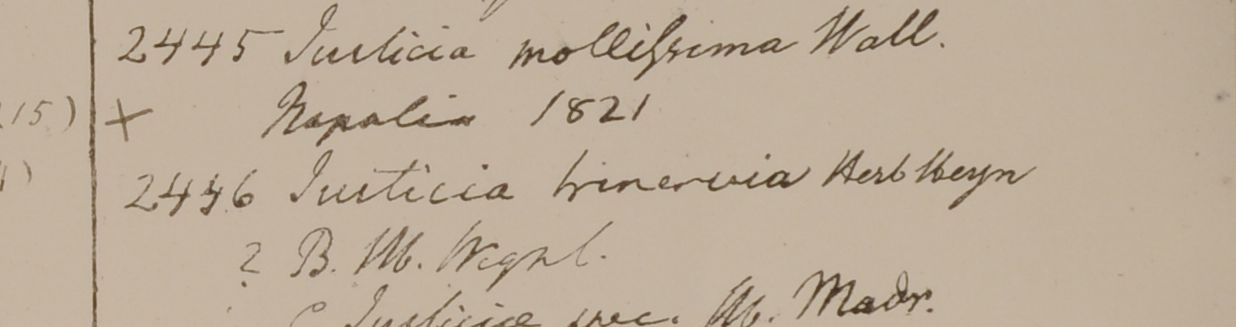 2445 Justicia mollissima Wall.
15) × Napalia 1821
2446 Justicia trinervia Herb Heyn
? B. M. Wight.
C Justicia spec. M. Madr.